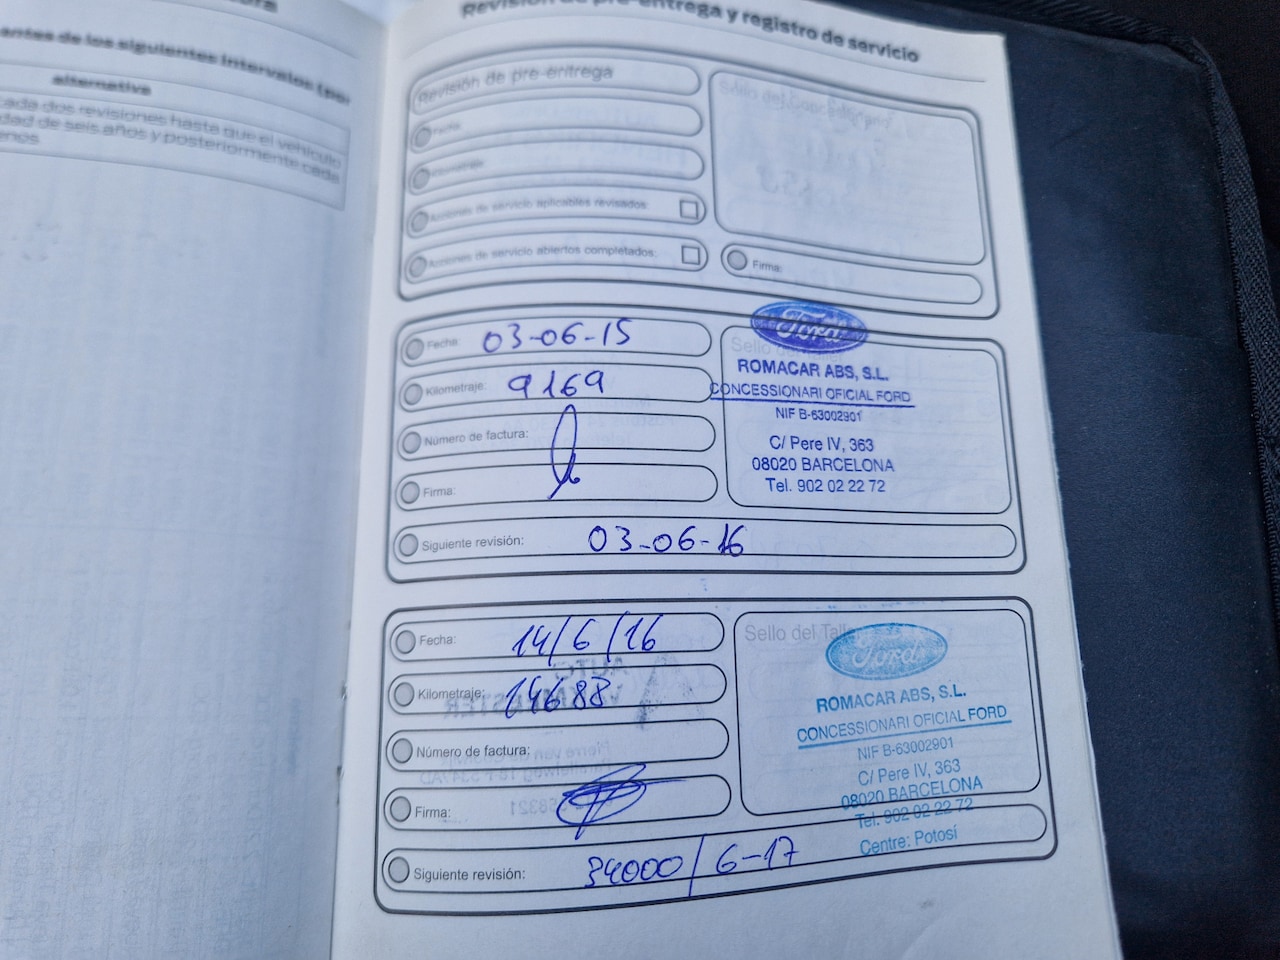 antes de los siguientes intervalos (por
alternativa
cada dos revisiones hasta que el vehículo
dad de seis años y posteriormente cada
menos
Revisión de pre-entrega y registro de servicio
Revisión de pre-entrega
Sello del Concesionario
Fecha:
Kilometraje:
Acciones de servicio aplicables revisados:
Acciones de servicio abiertos completados:
Firma:
Fecha: 03-06-15
Kilometraje: 9169
Número de factura:
Firma:
Siguiente revisión: 03-06-16
Sello del Taller
Ford
ROMACAR ABS, S.L.
CONCESSIONARI OFICIAL FORD
NIF B-63002901
C/ Pere IV, 363
08020 BARCELONA
Tel. 902 02 22 72
Fecha: 14/6/16
Kilometraje: 14688
Número de factura:
Firma:
Siguiente revisión: 34000/6-17
Sello del Taller
Ford
ROMACAR ABS, S.L.
CONCESSIONARI OFICIAL FORD
NIF B-63002901
C/ Pere IV, 363
08020 BARCELONA
Tel. 902 02 22 72
Centre: Potosí